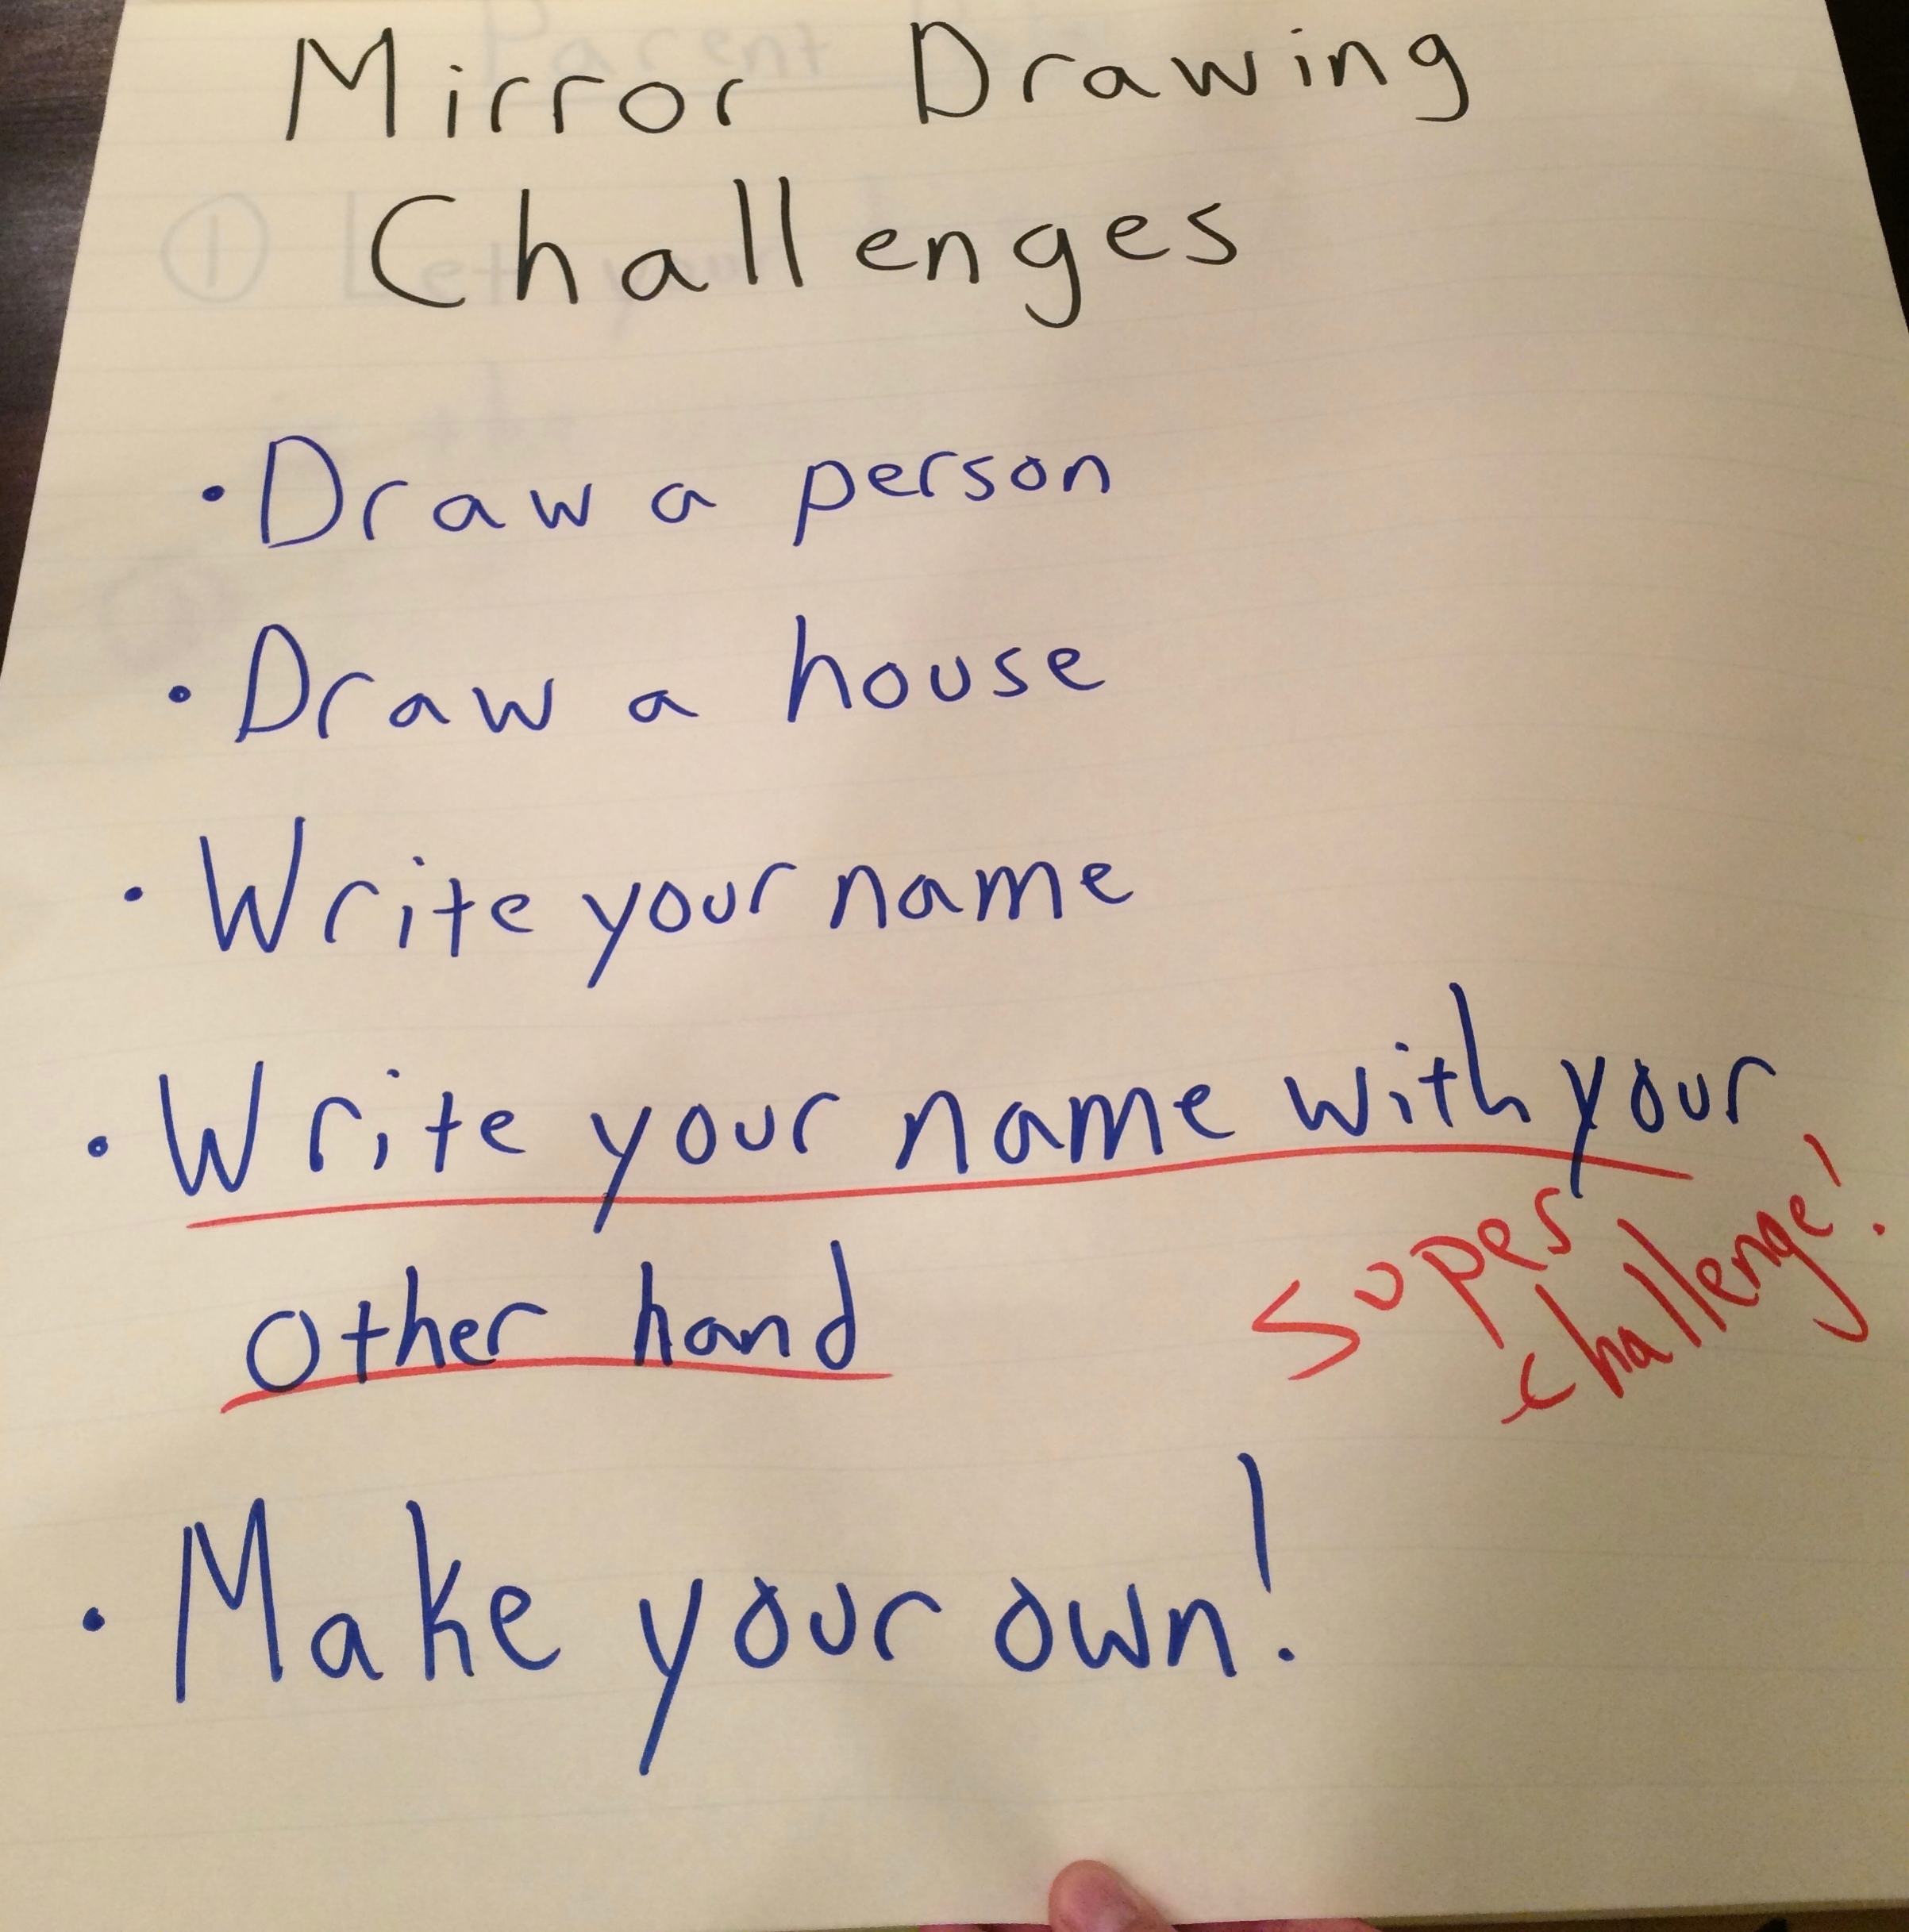 Mirror Drawing
Challenges
• Draw a person
• Draw a house
• Write your name
• Write your name with your
other hand
Super
challenge!
• Make your own!